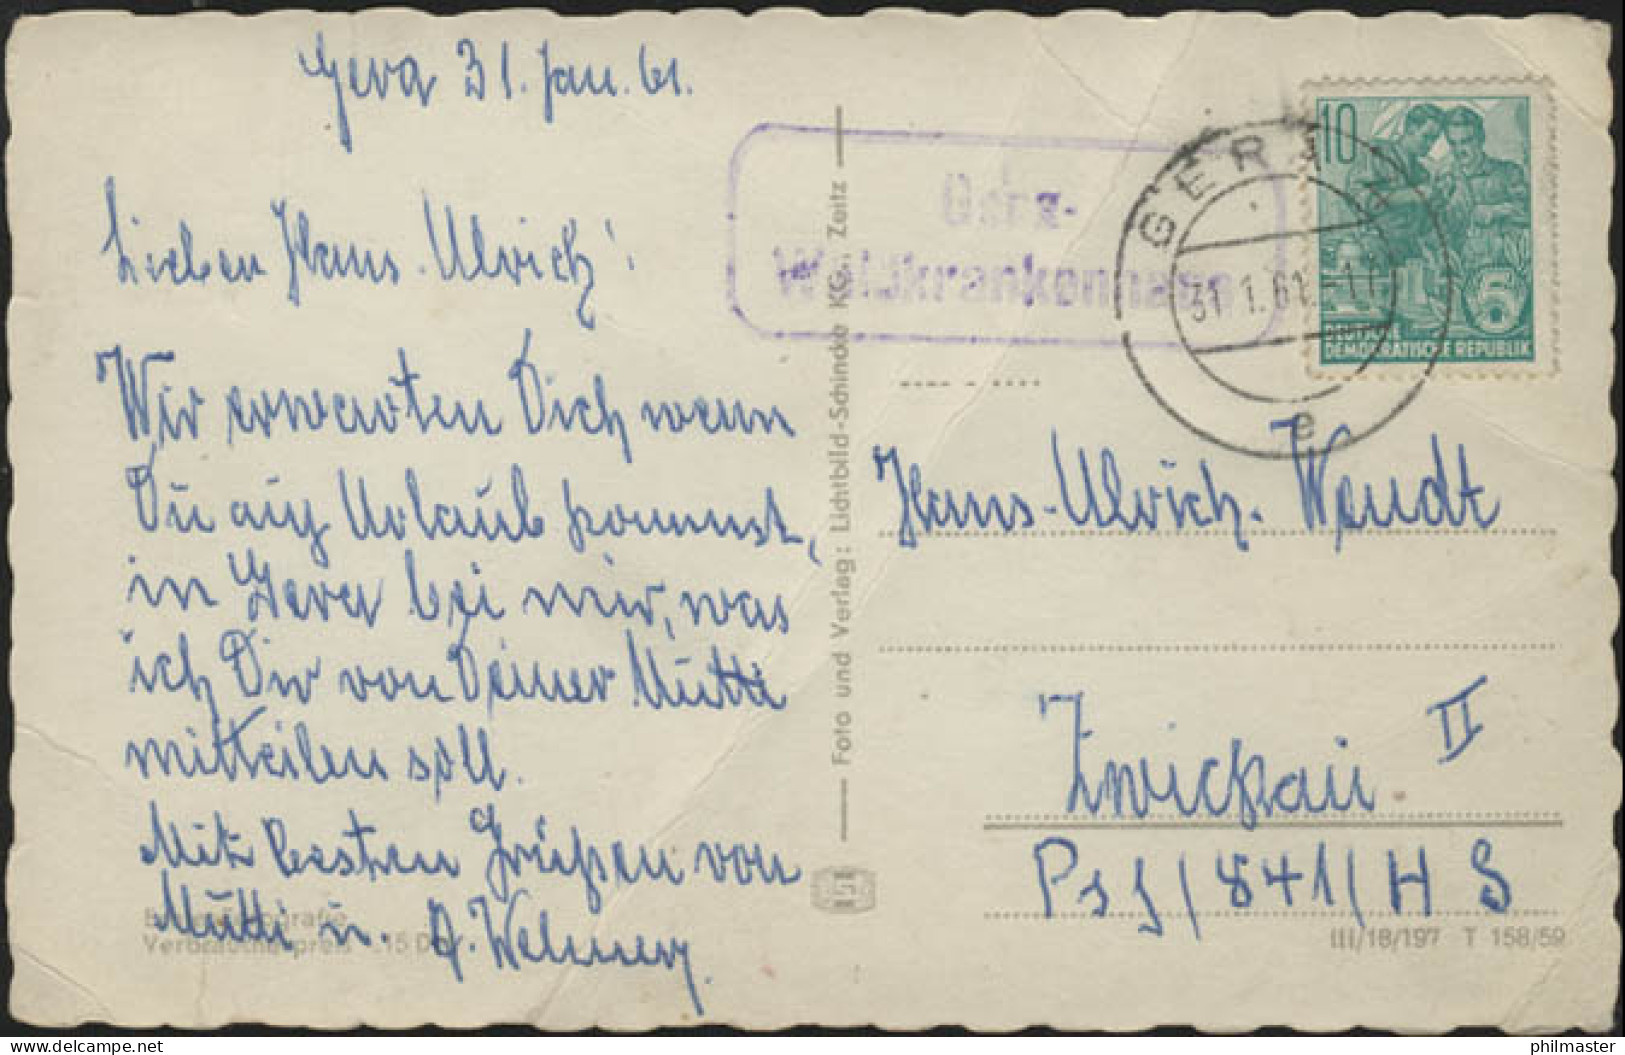 Gera 31. Jan. 61.
Lieber Hans-Ulrich!
Wir erwarten Dich wenn
Du auf Urlaub kommst,
in Gera bei mir, was
ich Dir von Deiner Mutti
mitteilen soll.
Mit besten Grüßen von
Mutti u.
Verbraucherpreis -.15 DM
Foto und Verlag: Lichtbild-Schincke KG., Zeitz
Gera-
Waldkrankenhaus
GERA
31.1.61.-11
e
10
5
DEUTSCHE
DEMOKRATISCHE REPUBLIK
Hans-Ulrich. Wendt
Zwickau II
Psf/841/H S
III/18/197 T 158/59
delcampe.net
philmaster